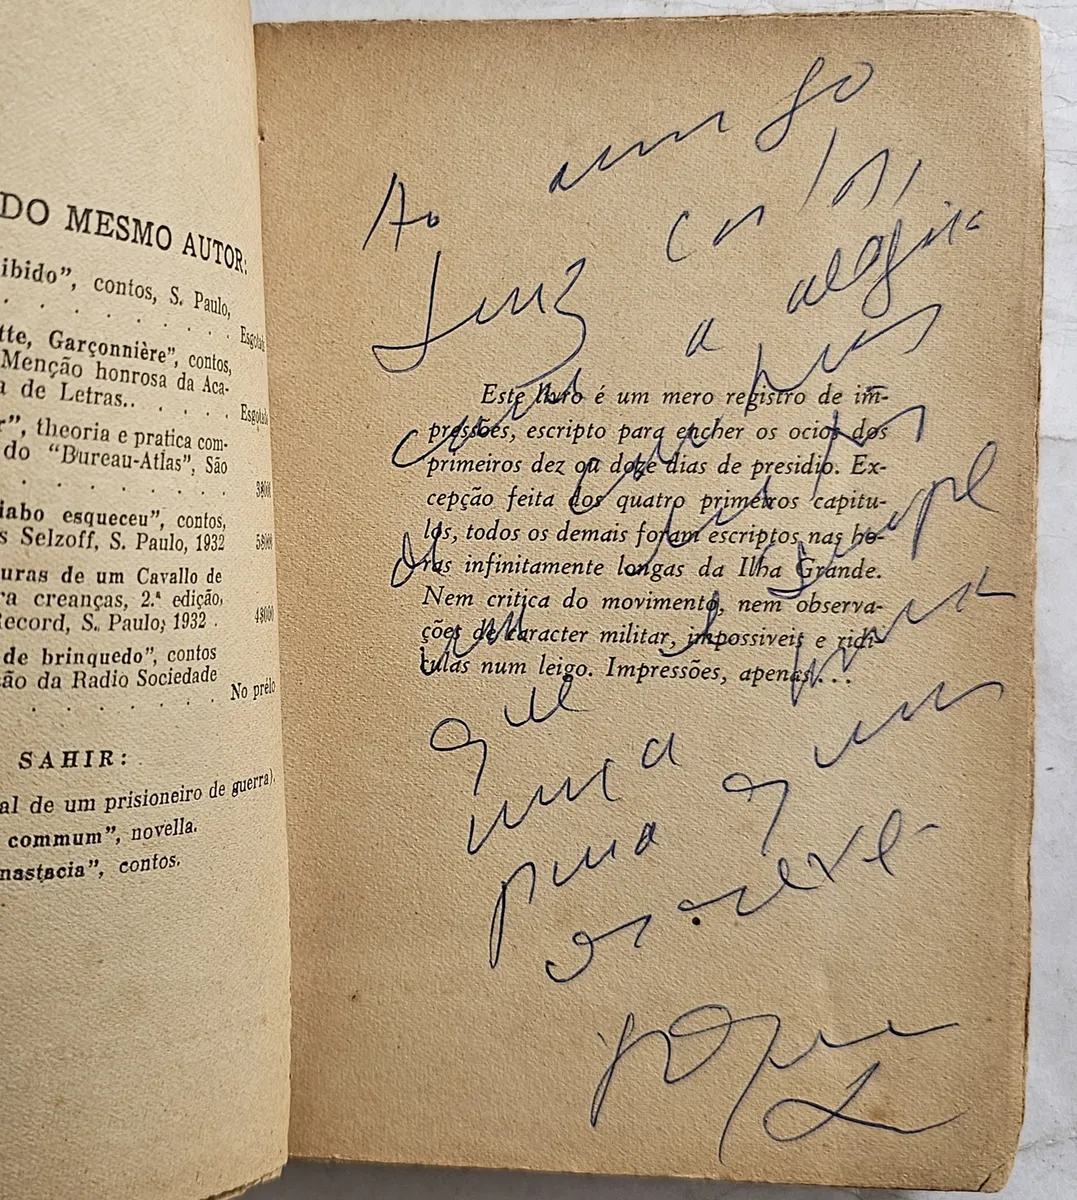 DO MESMO AUTOR:
ibido", contos, S. Paulo,
. . . . . . . . Esgotado
tte, Garçonnière", contos,
Menção honrosa da Aca-
a de Letras.. . . . . Esgotado
r", theoria e pratica com-
do "Bureau-Atlas", São
iabo esqueceu", contos,
s Selzoff, S. Paulo, 1932 5$000
uras de um Cavallo de
ra creanças, 2.ª edição,
Record, S. Paulo, 1932 . 4$000
de brinquedo", contos
ão da Radio Sociedade
. . . . . . . No prélo
SAHIR:
al de um prisioneiro de guerra).
commum", novella.
nastacia", contos.
Ao amigo
Luiz Carlos,
a alegria
Este livro é um mero registro de im-
pressões, escripto para encher os ocios dos
primeiros dez ou doze dias de presidio. Ex-
cepção feita dos quatro primeiros capitu-
los, todos os demais foram escriptos nas ho-
ras infinitamente longas da Ilha Grande.
Nem critica do movimento, nem observa-
ções de caracter militar, impossiveis e ridi-
culas num leigo. Impressões, apenas...
que
para quem
escreve